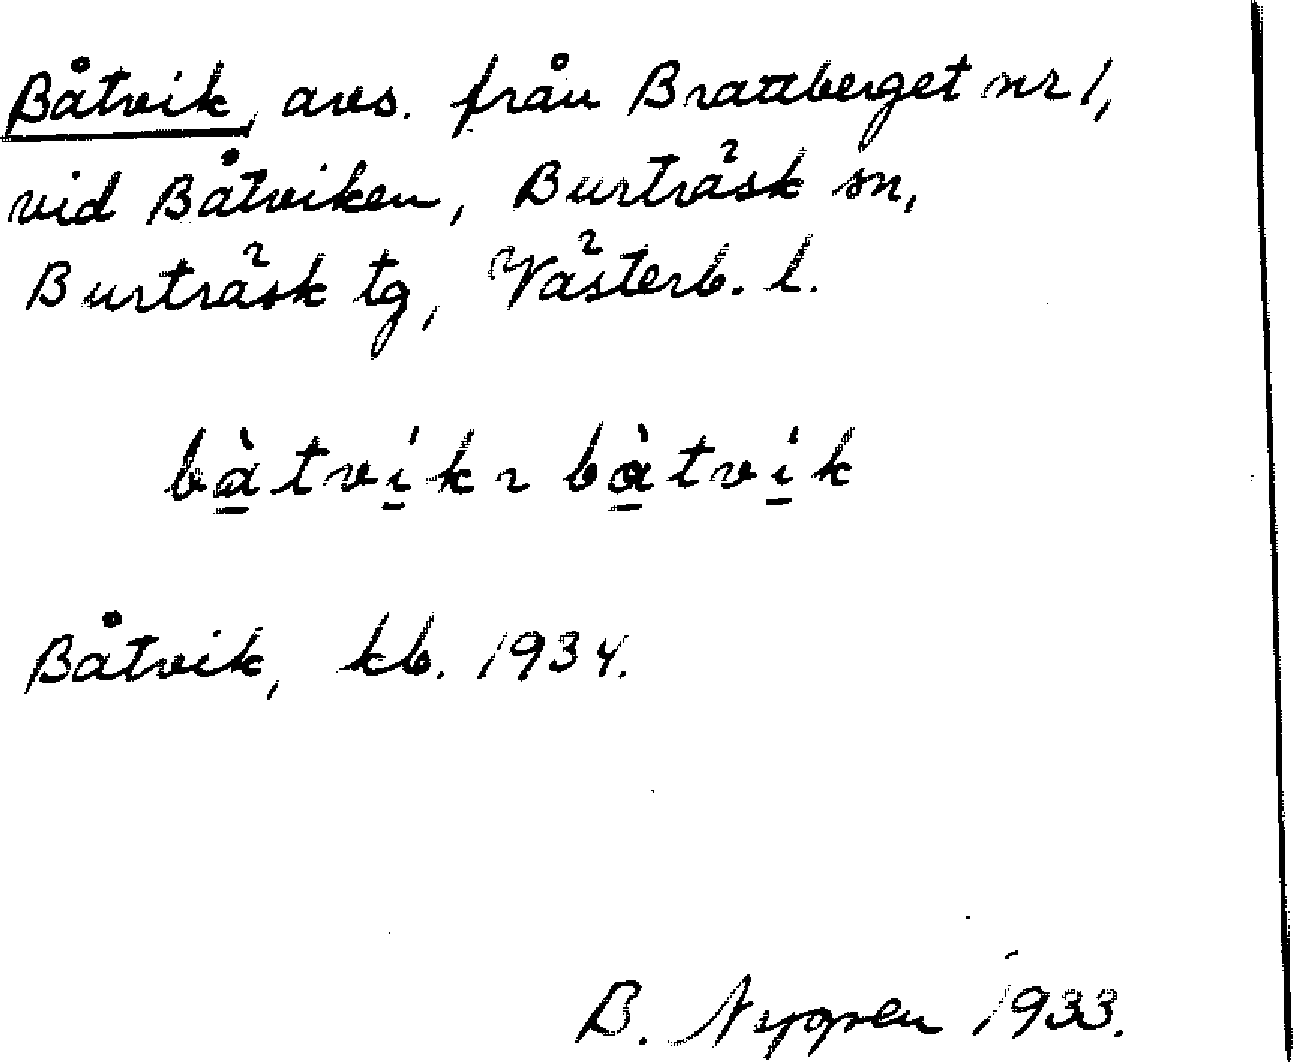 Båtvik, avs. från Brattberget nr 1,
vid Båtviken, Burträsk sn,
Burträsk tg, Västerb. l.
bà̱tvi̱k ~ bà̱tvi̱k
Båtvik, kb. 1934.
B. Nygren 1933.